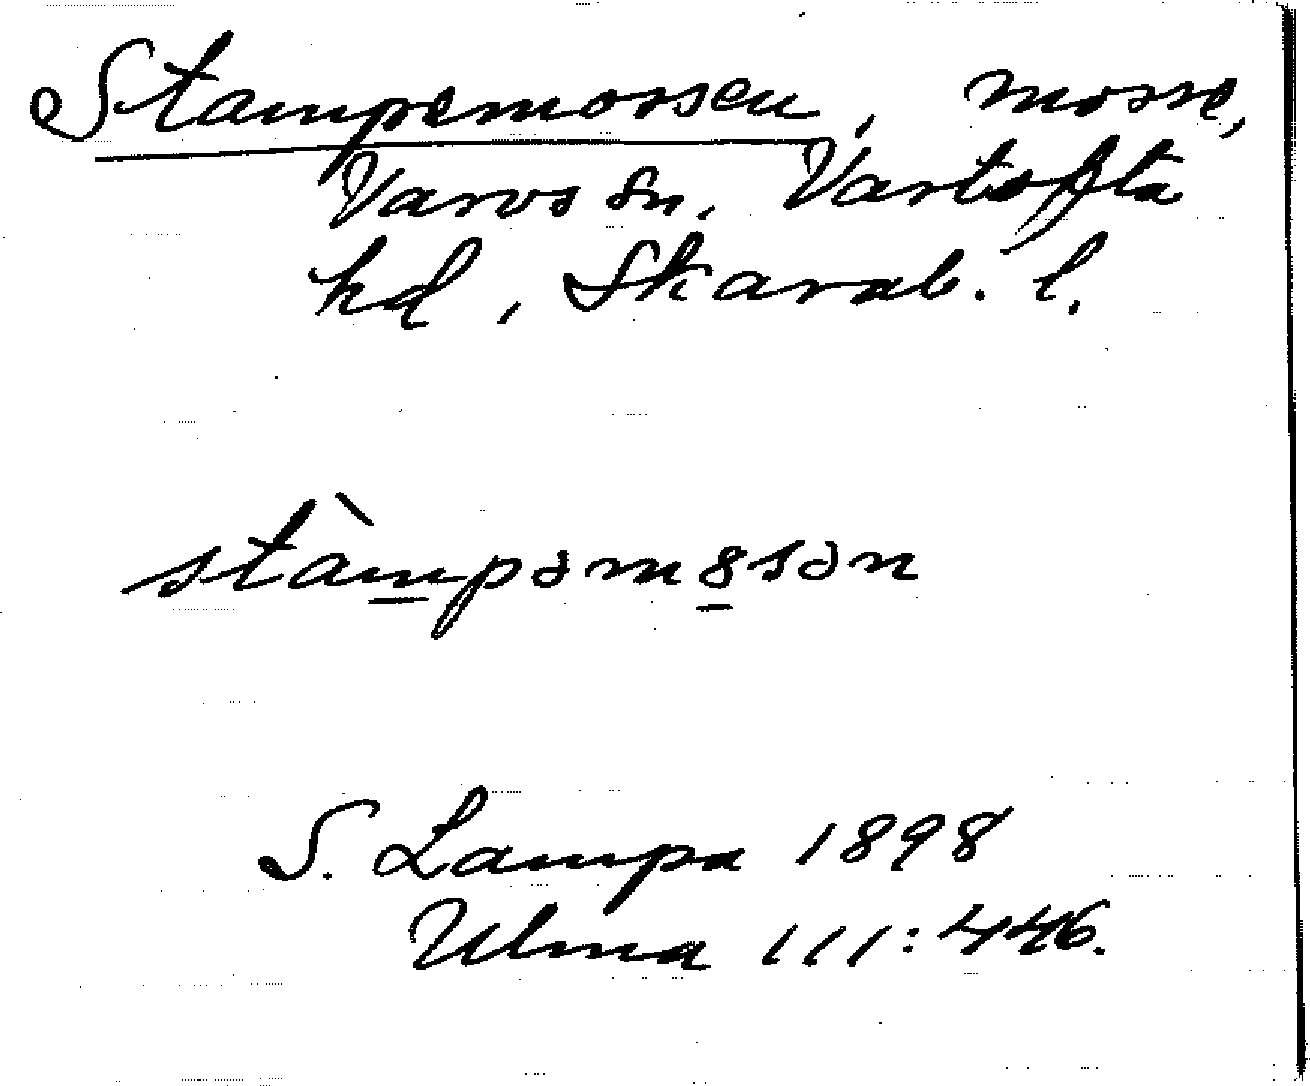 Stampemossen, mosse,
Varvs sn, Vartofta
hd, Skarab. l.
stàmpəm8sən
S. Lampa 1898
Ulma 111:446.